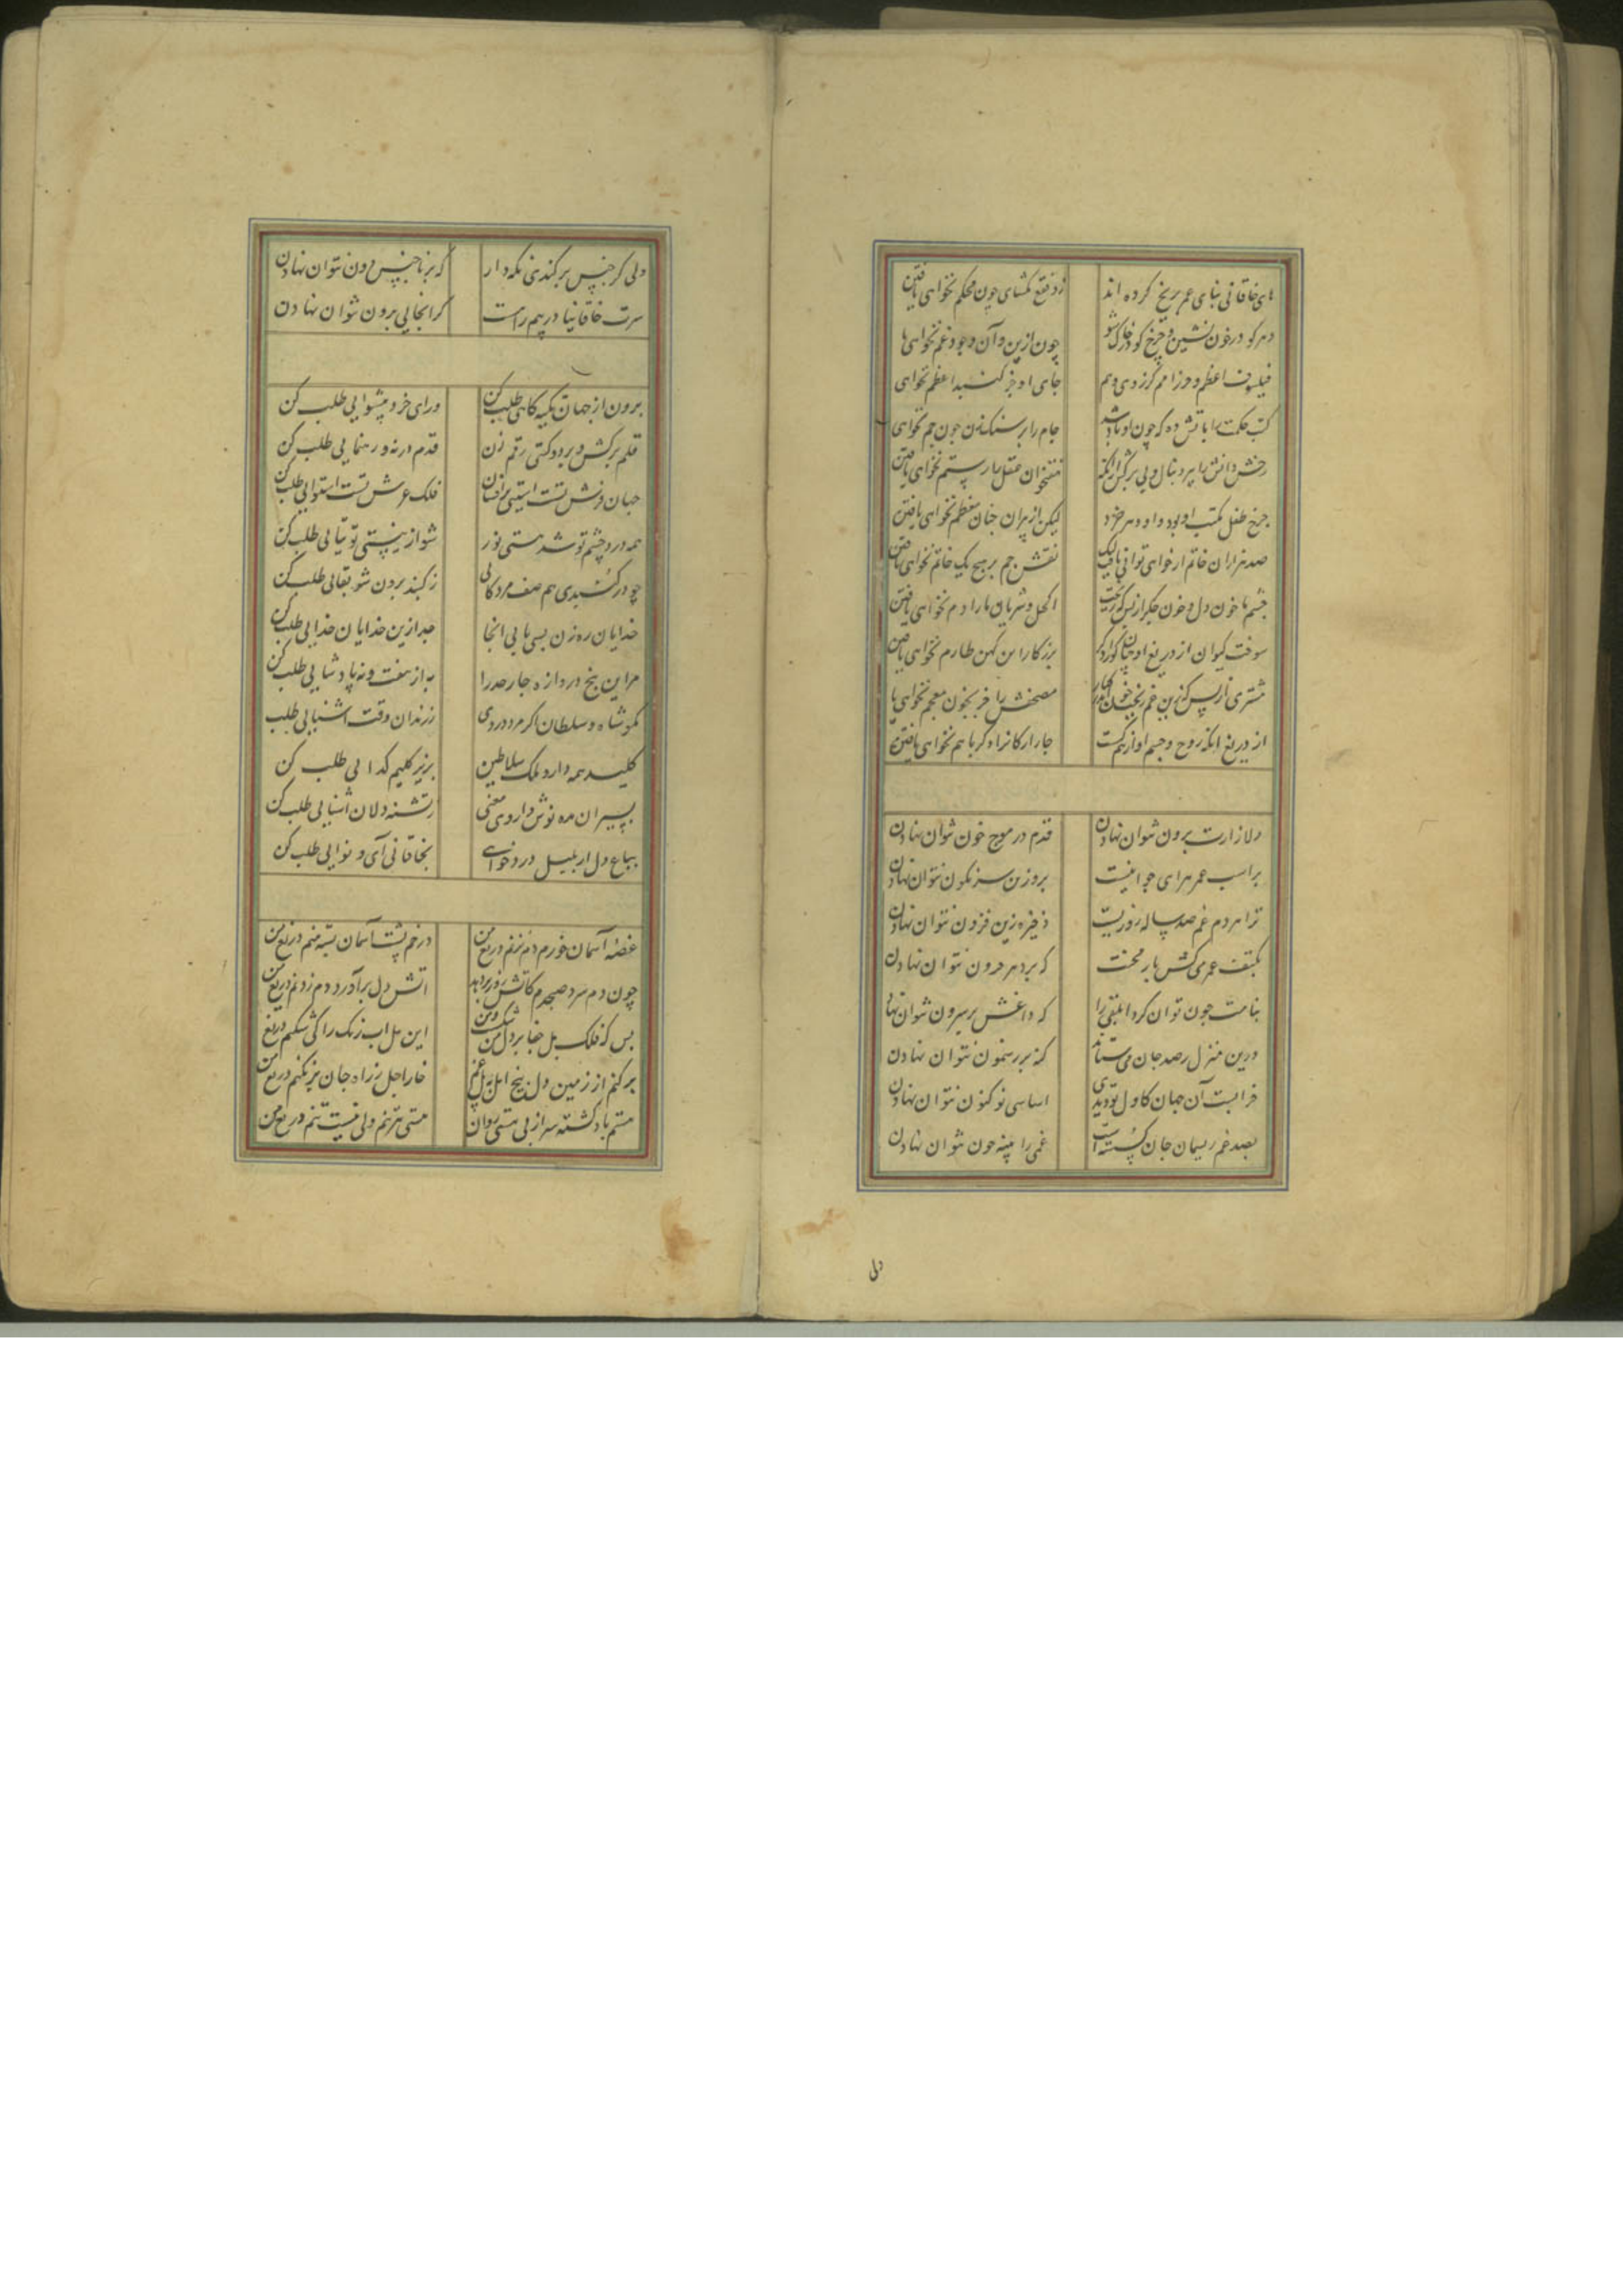 های خاقانی بنای عمر بر یخ کرده اند زو فقع مکشای چون محکم نخواهی یافتن
دهر کو در خون نشین و چرخ کو در خاک شو چون ازین و آن وجود غم نخواهی یا
فیلسوف اعظم و حرز امم کز روی وهم جای او جز کنبد اعظم نخواهی
کتب حکمت را باتش ده که چون او باد شد جام را بر سنک زن چون جم نخواهی
رخش دانش را ببر دنبال و پی برکش از آنکه هفتخوان عقل را رستم نخواهی یافتن
چرخ طفل مکتب او بود و او در خرد لیکن از پیران چنان معظم نخواهی یافتن
صد هزاران خاتم ار خواهی توانی یافت لیک نقش جم بر هیچ یک خاتم نخواهی یافتن
چشم ما خون دل و خون جکر از بس که ریخت اکحل و شریان ما را دم نخواهی یافتن
سوخت کیوان از دریغ او چنان کورا دکر برزکار این کهن طارم نخواهی یافتن
مشتری از بس کزین غم ریخت خون مصحفش را جز بخون معجم نخواهی یا
از دریغ آنکه روح و جسم او از هم کست چار ارکان را دکر با هم نخواهی یافتن
دلا زارت برون نتوان نهادن قدم در موج خون نتوان نهادن
بر اسب عمر هرای جوانیست برو زین سرنکون نتوان نهادن
ترا هر دم غم صد ساله روزیست ذخیره زین فزون نتوان نهادن
بکتف عمر می کش بار محنت که بر دهر حرون نتوان نهادن
بنامت چون توان کرد ابلقی را که داغش بر سرون نتوان نها
درین منزل رصد جان می ستاند کنه بر رهنمون نتوان نهادن
خرابست آن جهان کاول تو دیدی اساسی نو کنون نتوان نهادن
بصد غم ریسمان جان کسسته است غمی را پنبه چون نتوان نهادن
دلی
دلی کز جنس برکندی نکه دار که بر ناجنس دون نتوان نهادن
سرت خاقانیا در بیم راست کز انجا پی برون نتوان نهادن
برون از جهان تکیه کاهی طلب کن ورای خرد پیشوایی طلب کن
قلم برکش و بر دو کیتی رقم زن قدم در نه و رهنمایی طلب کن
جهان فرش تست آستینی برافشان فلک عرش تست استوایی طلب کن
همه درد چشم تو شد هستی تو ر شو از نیستی توتیایی طلب کن
چو در کنبدی هم صف مردکانی ز کنبد برون شو بقایی طلب کن
خدایان ره زن بسی یابی انجا جدا زین خدایان خدایی طلب کن
مر این پنج دروازه چار حد را به از هفت و نه پادشایی طلب کن
مکو شاه و سلطان اکر مرد دردی ز رندان وقت آشنایی طلب
کلید همه دار و ملک سلاطین بزیر کلیم کدایی طلب کن
بسیران مده نوش داروی معنی ز تشنه دلان آشنایی طلب کن
بباغ دل ار بلبل درد خواهی بخاقانی آی و نوایی طلب کن
غصه آسمان خورم دم نزنم دریغ من در خم پشت آسمان بسته منم دریغ من
چون دم سرد صبحدم کاتش روز بر دمد آتش دل برآورد دم زدنم دریغ من
بس که فلک پل جفا بر دل من شکست و من این پل آب رنک را کی شکنم دریغ
برکنم از زمین دل بیخ امل به بیل غم خار اجل ز راه جان بر نکنم دریغ من
هستم باد کشته سر از پی هستی روان هستی بترنم ولی نیست تنم دریغ من